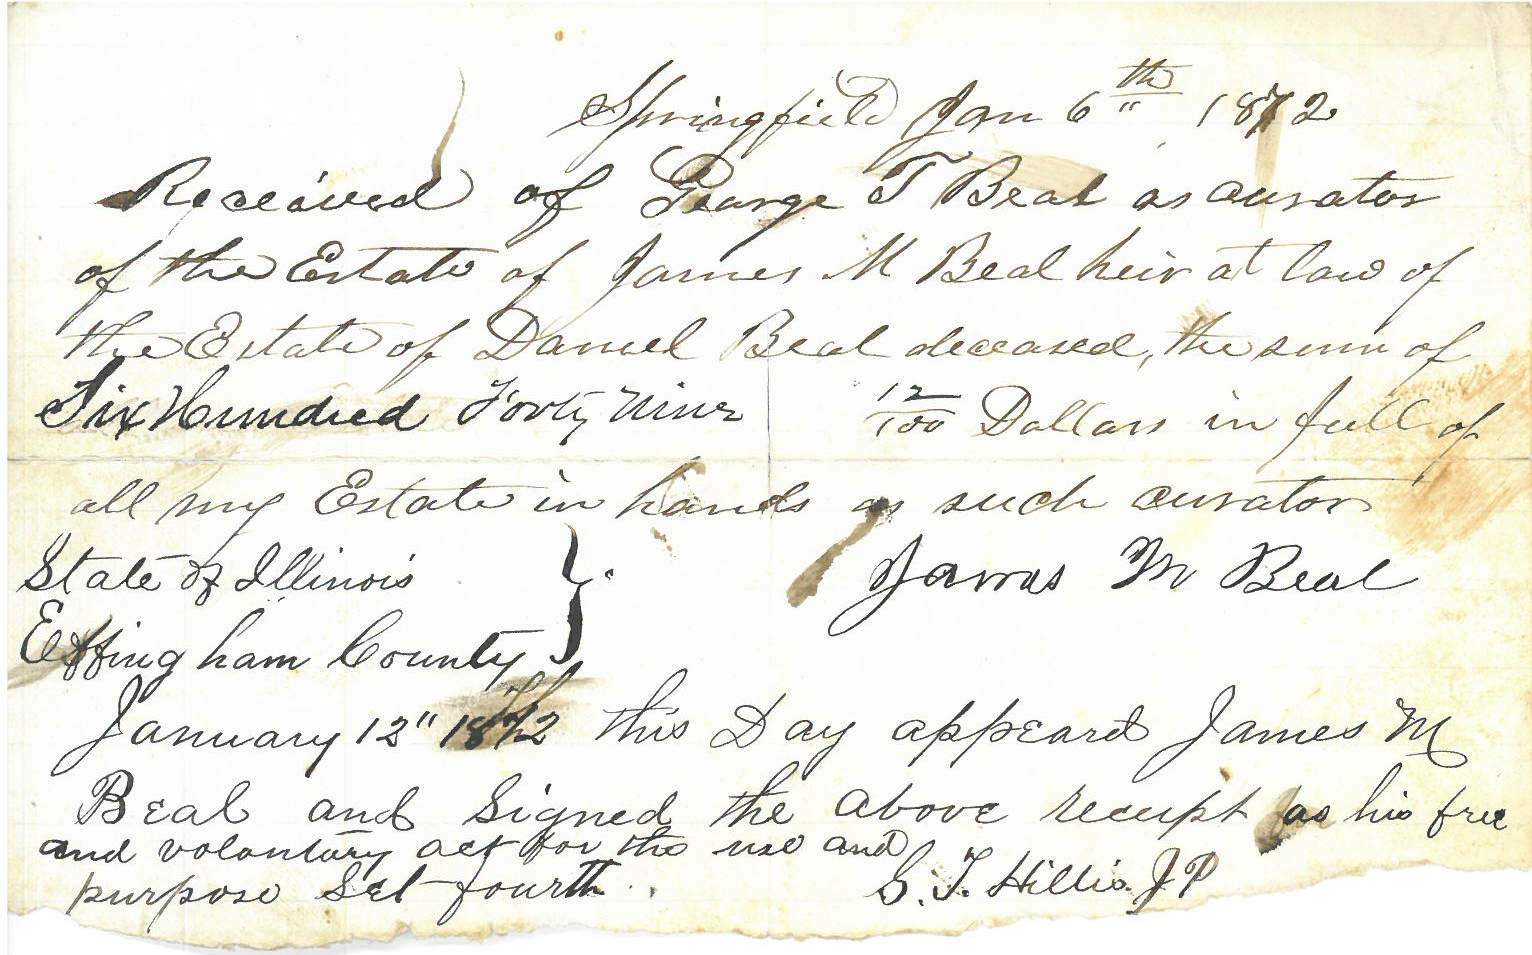 Springfield Jan 6th 1872
Received of George T Beal as curator
of the Estate of James M Beal heir at law of
the Estate of Daniel Beal deceased, the sum of
Six Hundred Forty Nine 12/100 Dollars in full of
all my Estate in hands as such curator
James M Beal
State of Illinois }
Effingham County }
January 12" 1872 this Day appeard James M
Beal and Signed the above receipt as his free
and voluntary act for the use and
purpose Set fourth.
S. T. Hillis J P